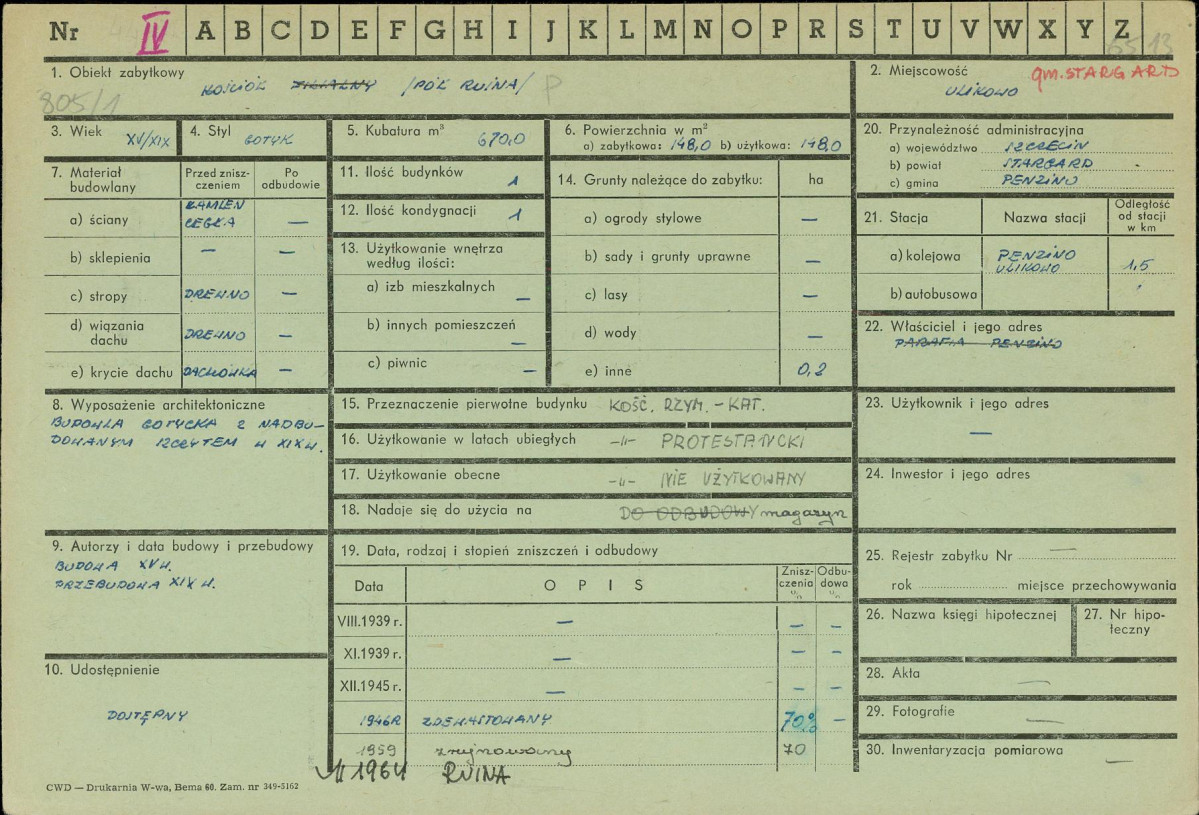 Nr IV A B C D E F G H I J K L M N O P R S T U V W X Y Z
6513
1. Obiekt zabytkowy
KOŚCIÓŁ FILIALNY /PÓŁ RUINA/ P
805/1
2. Miejscowość gm. STARGARD
ULIKOWO
3. Wiek XV/XIX
4. Styl GOTYK
5. Kubatura m³ 670,0
6. Powierzchnia w m²
a) zabytkowa: 148,0 b) użytkowa: 148,0
20. Przynależność administracyjna
a) województwo SZCZECIN
b) powiat STARGARD
c) gmina PENZINO
7. Materiał budowlany
Przed zniszczeniem
Po odbudowie
a) ściany KAMIEŃ
CEGŁA —
b) sklepienia — —
c) stropy DREWNO —
d) wiązania dachu DREWNO —
e) krycie dachu DACHÓWKA —
11. Ilość budynków 1
12. Ilość kondygnacji 1
13. Użytkowanie wnętrza
według ilości:
a) izb mieszkalnych —
b) innych pomieszczeń —
c) piwnic —
14. Grunty należące do zabytku: ha
a) ogrody stylowe —
b) sady i grunty uprawne —
c) lasy —
d) wody —
e) inne 0,2
21. Stacja Nazwa stacji Odległość od stacji w km
a) kolejowa PENZINO
ULIKOWO 1,5
b) autobusowa
22. Właściciel i jego adres
PARAFIA PENZINO
8. Wyposażenie architektoniczne
BUDOWLA GOTYCKA Z NADBU-
DOWANYM SZCZYTEM W XIX W.
15. Przeznaczenie pierwotne budynku KOŚĆ. RZYM. - KAT.
16. Użytkowanie w latach ubiegłych -"- PROTESTANCKI
17. Użytkowanie obecne -"- NIE UŻYTKOWANY
18. Nadoje się do użycia na DO ODBUDOWY magazyn
23. Użytkownik i jego adres
—
24. Inwestor i jego adres
9. Autorzy i data budowy i przebudowy
BUDOWA XV W.
PRZEBUDOWA XIX W.
19. Data, rodzaj i stopień zniszczeń i odbudowy
Data OPIS Zniszczenia % Odbudowa %
VIII.1939 r. — — —
XI.1939 r. — — —
XII.1945 r. — — —
1946R ZDEWASTOWANY 70% —
1959 zrujnowany 70
1964 RUINA
25. Rejestr zabytku Nr —
rok miejsce przechowywania
26. Nazwa księgi hipotecznej
27. Nr hipoteczny
10. Udostępnienie
DOSTĘPNY
28. Akta —
29. Fotografie —
30. Inwentaryzacja pomiarowa —
CWD — Drukarnia W-wa, Bema 60. Zam. nr 349-5162